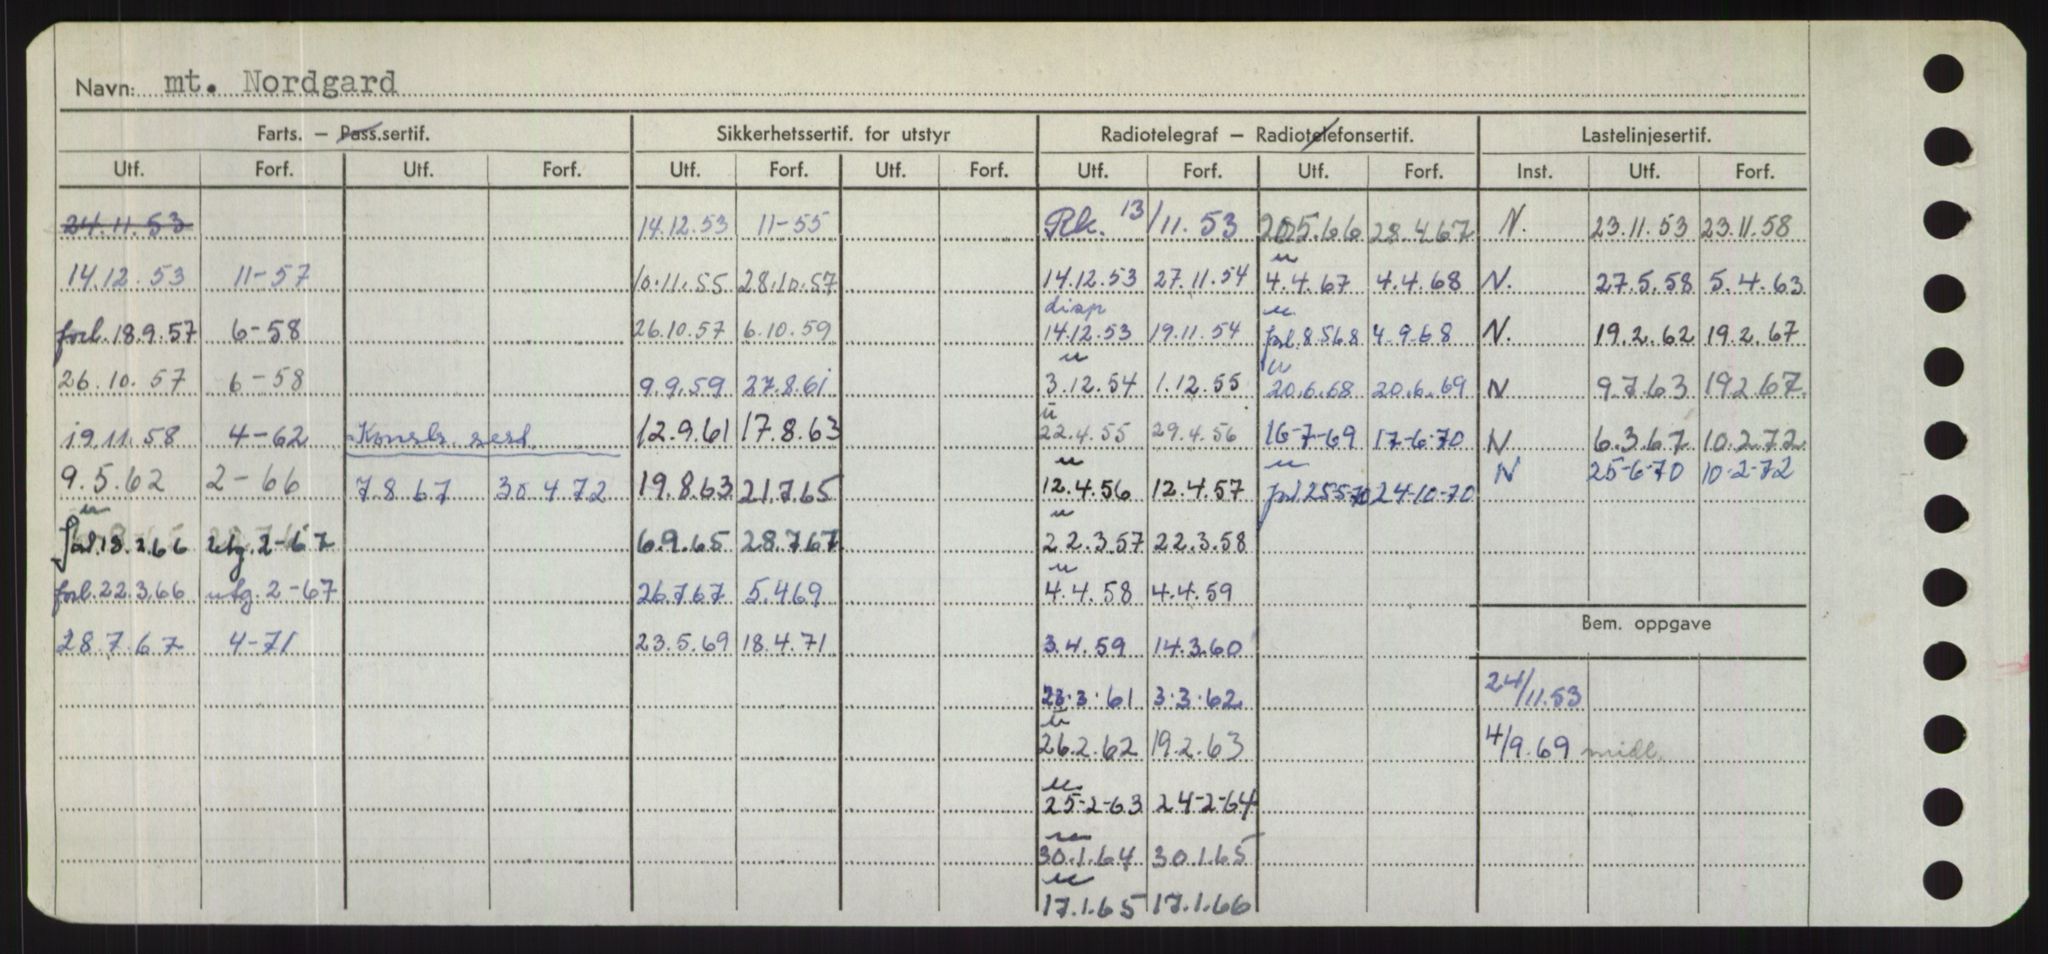 Navn: mt. Nordgard
Farts. — Pass.sertif. Sikkerhetssertif. for utstyr Radiotelegraf — Radiotelefonsertif. Lastelinjesertif.
Utf. Forf. Utf. Forf. Utf. Forf. Utf. Forf. Utf. Forf. Utf. Forf. Inst. Utf. Forf.
24.11.53 14.12.53 11-55 Rk. 13/11.53 20.5.66 28.4.67 N. 23.11.53 23.11.58
14.12.53 11-57 10.11.55 28.10.57 14.12.53 27.11.54 4.4.67 4.4.68 N. 27.5.58 5.4.63
disp
forl. 18.9.57 6-58 26.10.57 6.10.59 14.12.53 19.11.54 forl. 8.5.68 4-9-68 N. 19.2.62 19.2.67
26.10.57 6-58 9.9.59 27.8.61 3.12.54 1.12.55 20.6.68 20.6.69 N 9.7.63 19.2.67
19.11.58 4-62 Konstr. sert. 12.9.61 17.8.63 22.4.55 29.4.56 16-7-69 17-6-70 N 6.3.67 10.2.72
9.5.62 2-66 7.8.67 30.4.72 19.8.63 21.7.65 12.4.56 12.4.57 forl 25-5-70 24-10-70 N 25-6-70 10-2-72
forl. 18.2.66 utg. 2-67 6.9.65 28.7.67 22.3.57 22.3.58
forl. 22.3.66 utg. 2-67 26.7.67 5.4.69 4.4.58 4.4.59
28.7.67 4-71 23.5.69 18.4.71 3.4.59 14.3.60 Bem. oppgave
23.3.61 3.3.62 24/11.53
26.2.62 19.2.63 4/9.69 midl.
25-2-63 24-2-64
30.1.64 30.1.65
17.1.65 17.1.66